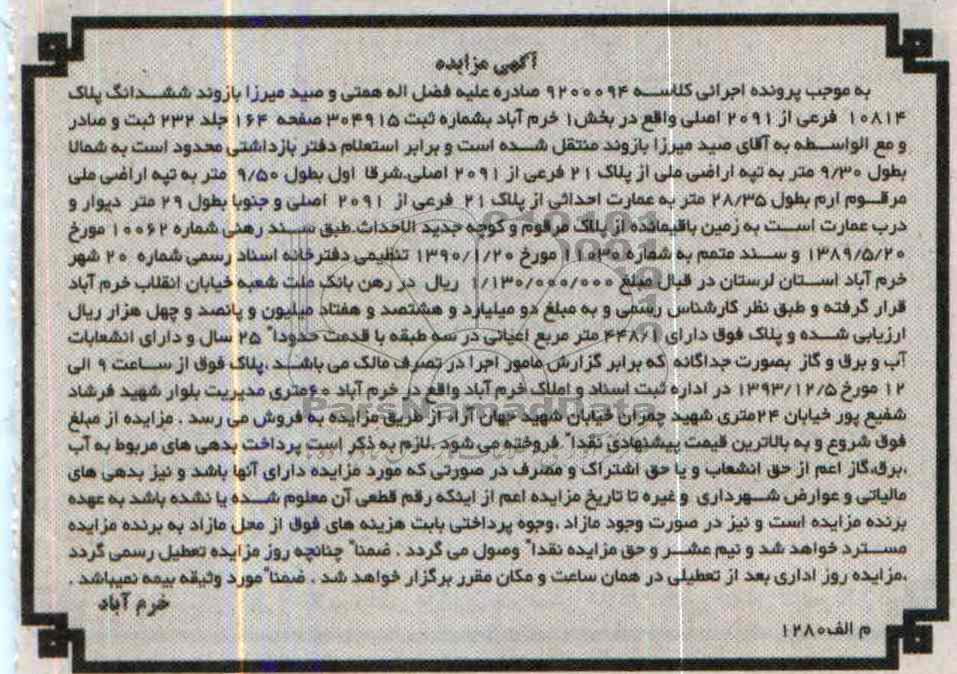 آگهی مزایده
به موجب پرونده اجرائی کلاسه ۹۲۰۰۰۹۴ صادره علیه فضل اله همتی و صید میرزا بازوند ششدانگ پلاک
۱۰۸۱۴ فرعی از ۲۰۹۱ اصلی واقع در بخش۱ خرم آباد بشماره ثبت ۳۰۴۹۱۵ صفحه ۱۶۴ جلد ۲۳۲ ثبت و صادر
و مع الواسطه به آقای صید میرزا بازوند منتقل شده است و برابر استعلام دفتر بازداشتی محدود است به شمالا
بطول ۹/۳۰ متر به تپه اراضی ملی از پلاک ۲۱ فرعی از ۲۰۹۱ اصلی،شرقا اول بطول ۹/۵۰ متر به تپه اراضی ملی
مرقوم ارم بطول ۲۸/۳۵ متر به عمارت احداثی از پلاک ۲۱ فرعی از ۲۰۹۱ اصلی و جنوبا بطول ۲۹ متر دیوار و
درب عمارت است به زمین باقیمانده از پلاک مرقوم و کوچه جدید الاحداث.طبق سند رهنی شماره ۱۰۰۶۲ مورخ
۱۳۸۹/۵/۲۰ و سند متمم به شماره ۱۱۰۳۰ مورخ ۱۳۹۰/۱/۲۰ تنظیمی دفترخانه اسناد رسمی شماره ۲۰ شهر
خرم آباد استان لرستان در قبال مبلغ ۱/۱۳۰/۰۰۰/۰۰۰ ریال در رهن بانک ملت شعبه خیابان انقلاب خرم آباد
قرار گرفته و طبق نظر کارشناس رسمی و به مبلغ دو میلیارد و هشتصد و هفتاد میلیون و پانصد و چهل هزار ریال
ارزیابی شده و پلاک فوق دارای ۴۴۸/۱ متر مربع اعیانی در سه طبقه با قدمت حدوداً ۲۵ سال و دارای انشعابات
آب و برق و گاز بصورت جداگانه که برابر گزارش مامور اجرا در تصرف مالک می باشد .پلاک فوق از ساعت ۹ الی
۱۲ مورخ ۱۳۹۳/۱۲/۵ در اداره ثبت اسناد و املاک خرم آباد واقع در خرم آباد ۶۰متری مدیریت بلوار شهید فرشاد
شفیع پور خیابان ۲۴متری شهید چمران خیابان شهید جهان آراء از طریق مزایده به فروش می رسد . مزایده از مبلغ
فوق شروع و به بالاترین قیمت پیشنهادی نقداً فروخته می شود .لازم به ذکر است پرداخت بدهی های مربوط به آب
،برق،گاز اعم از حق انشعاب و یا حق اشتراک و مصرف در صورتی که مورد مزایده دارای آنها باشد و نیز بدهی های
مالیاتی و عوارض شهرداری و غیره تا تاریخ مزایده اعم از اینکه رقم قطعی آن معلوم شده یا نشده باشد به عهده
برنده مزایده است و نیز در صورت وجود مازاد ،وجوه پرداختی بابت هزینه های فوق از محل مازاد به برنده مزایده
مسترد خواهد شد و نیم عشر و حق مزایده نقداً وصول می گردد . ضمناً چنانچه روز مزایده تعطیل رسمی گردد
،مزایده روز اداری بعد از تعطیلی در همان ساعت و مکان مقرر برگزار خواهد شد . ضمناً مورد وثیقه بیمه نمیباشد .
خرم آباد
م الف۱۲۸۰